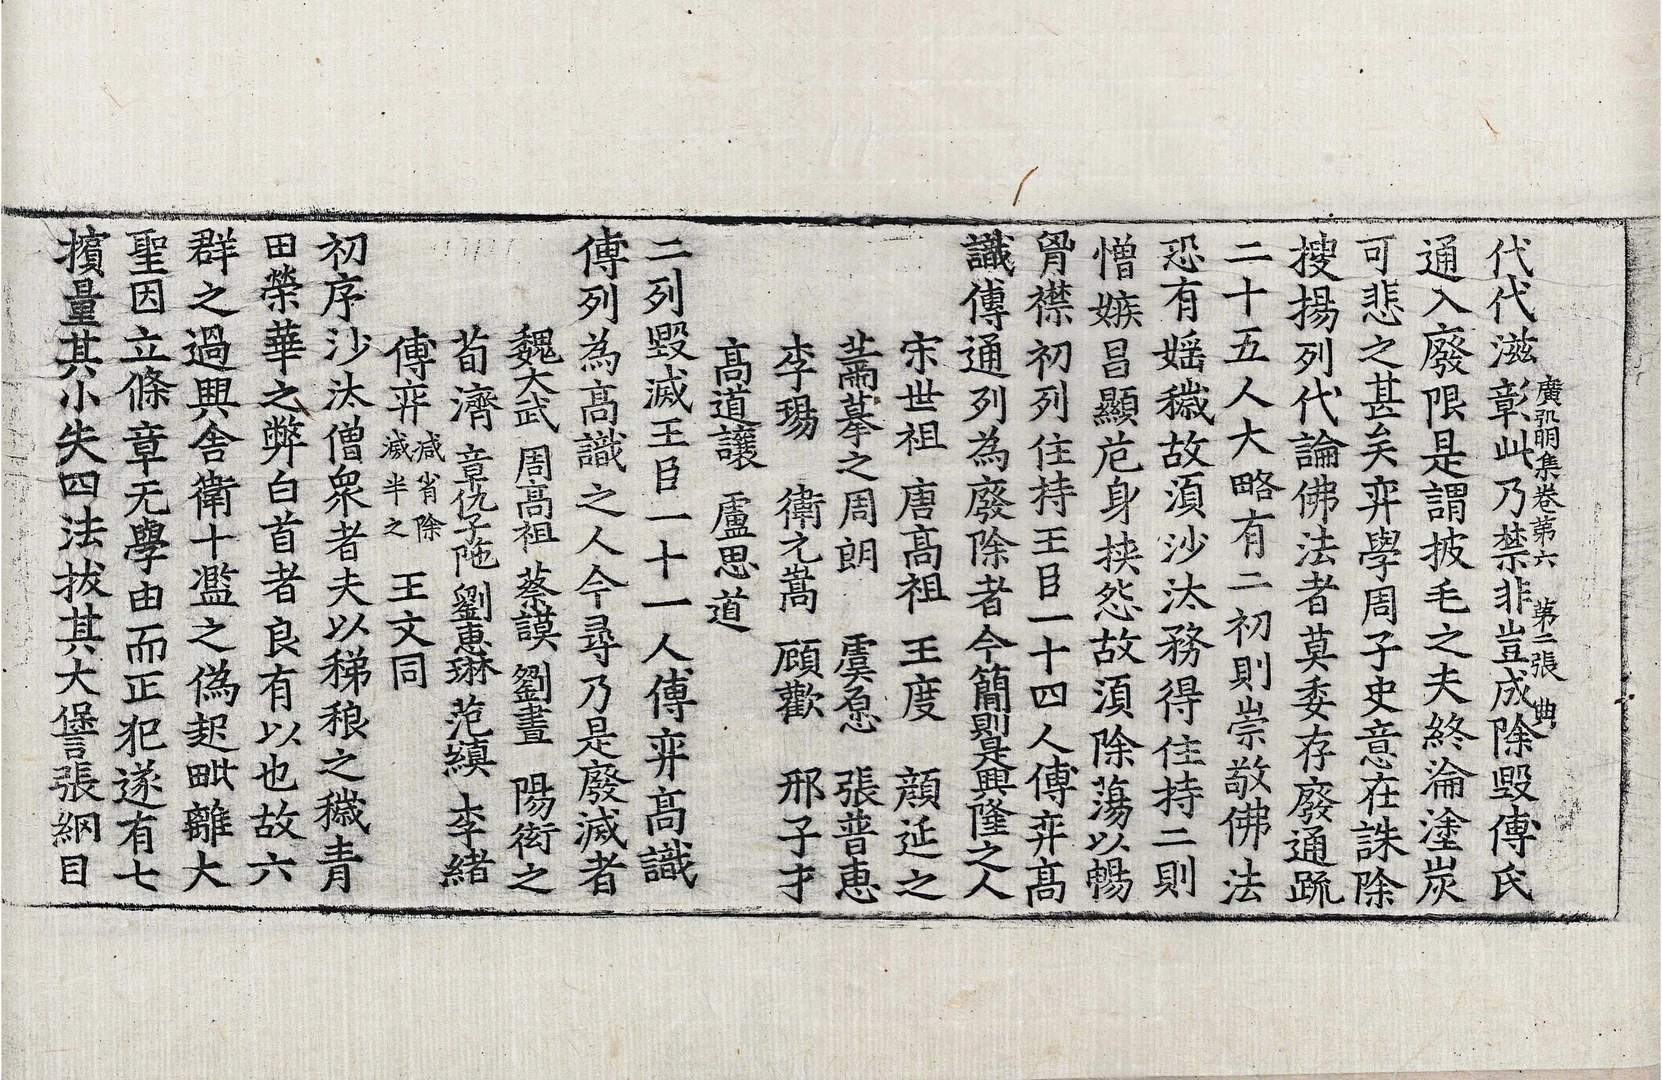 廣弘明集卷第六　第二張　典
代代滋彰此乃禁非豈成除毀傅氏
通入廢限是謂披毛之夫終淪塗炭
可悲之甚矣弈學周子史意在誅除
搜揚列代論佛法者莫委存廢通疏
二十五人大略有二初則崇敬佛法
恐有婬穢故湏沙汰務得住持二則
憎嫉昌顯危身挾怨故湏除蕩以暢
胷襟初列住持王臣一十四人傅弈高
識傅通列為廢除者今簡則是興隆之人
宋世祖　唐高祖　王度　顔延之
蕭摹之　周朗　虞愿　張普惠
李瑒　衛元嵩　顧歡　邢子才
高道讓　盧思道
二列毀滅王臣一十一人傅弈高識
傅列為高識之人今尋乃是廢滅者
魏太武　周高祖　蔡謨　劉晝　陽衒之
荀濟　章仇子陁　劉惠琳　范縝　李緒
傅弈減省除滅半之　王文同
初序沙汰僧衆者夫以稊稂之穢青
田榮華之弊白首者良有以也故六
群之過興舍衛十濫之偽起毗離大
聖因立條章无學由而正犯遂有七
擯量其小失四法拔其大愆張網目